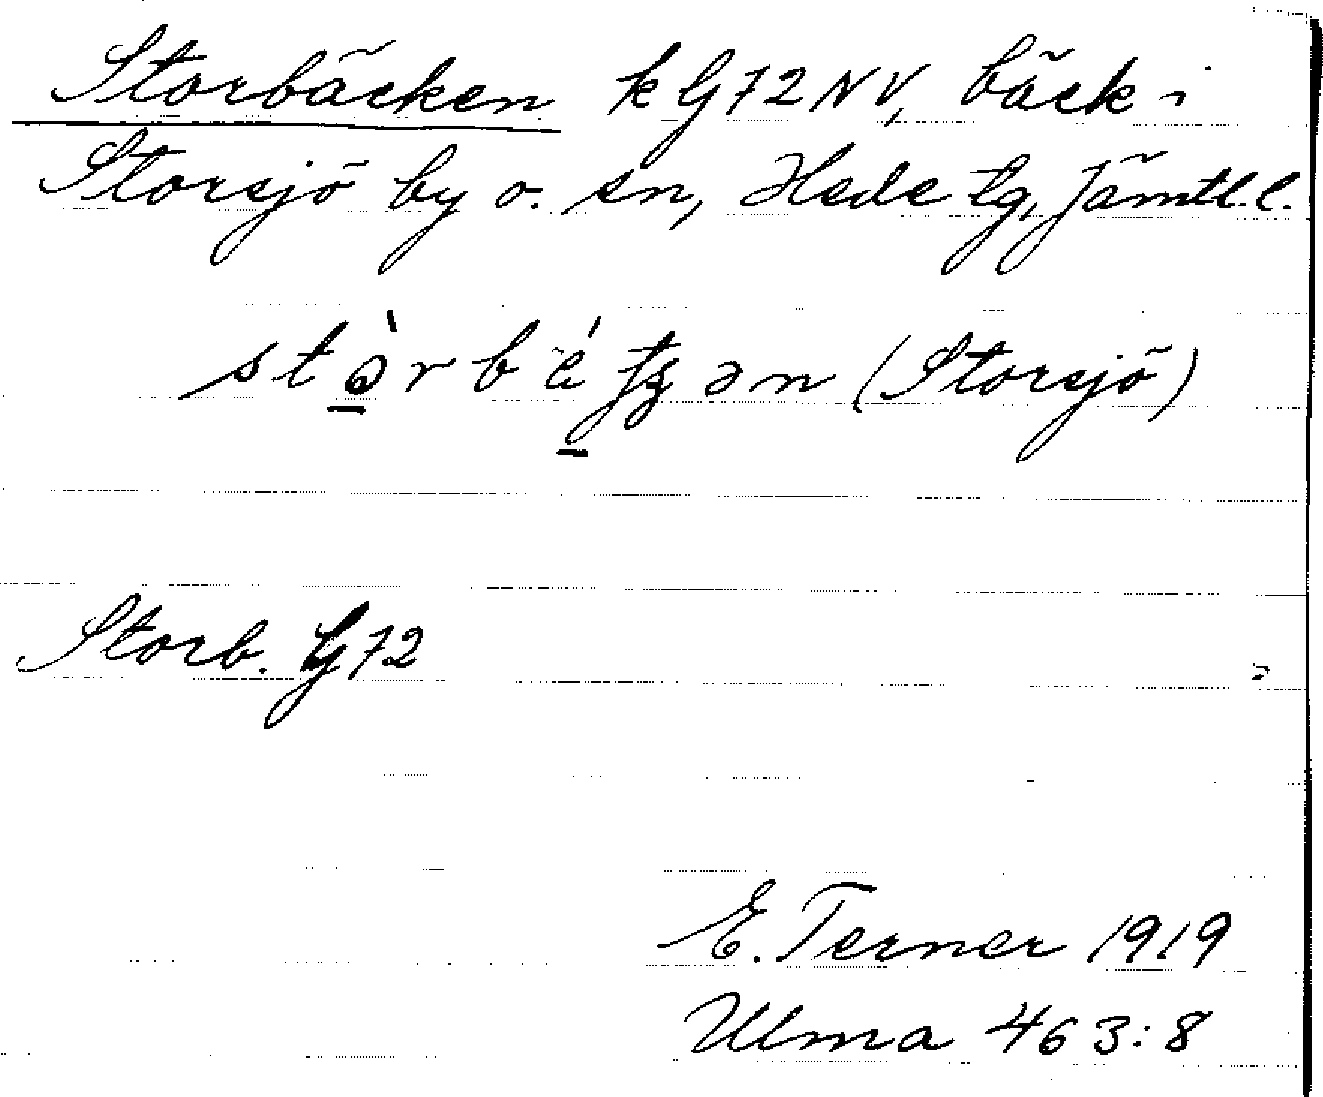 Storbäcken k G72NV, bäck i
Storsjö by o. sn, Hede tg, Jämtl. l.
(Storsjö)
Storb. G72
E. Terner 1919
Ulma 463:8